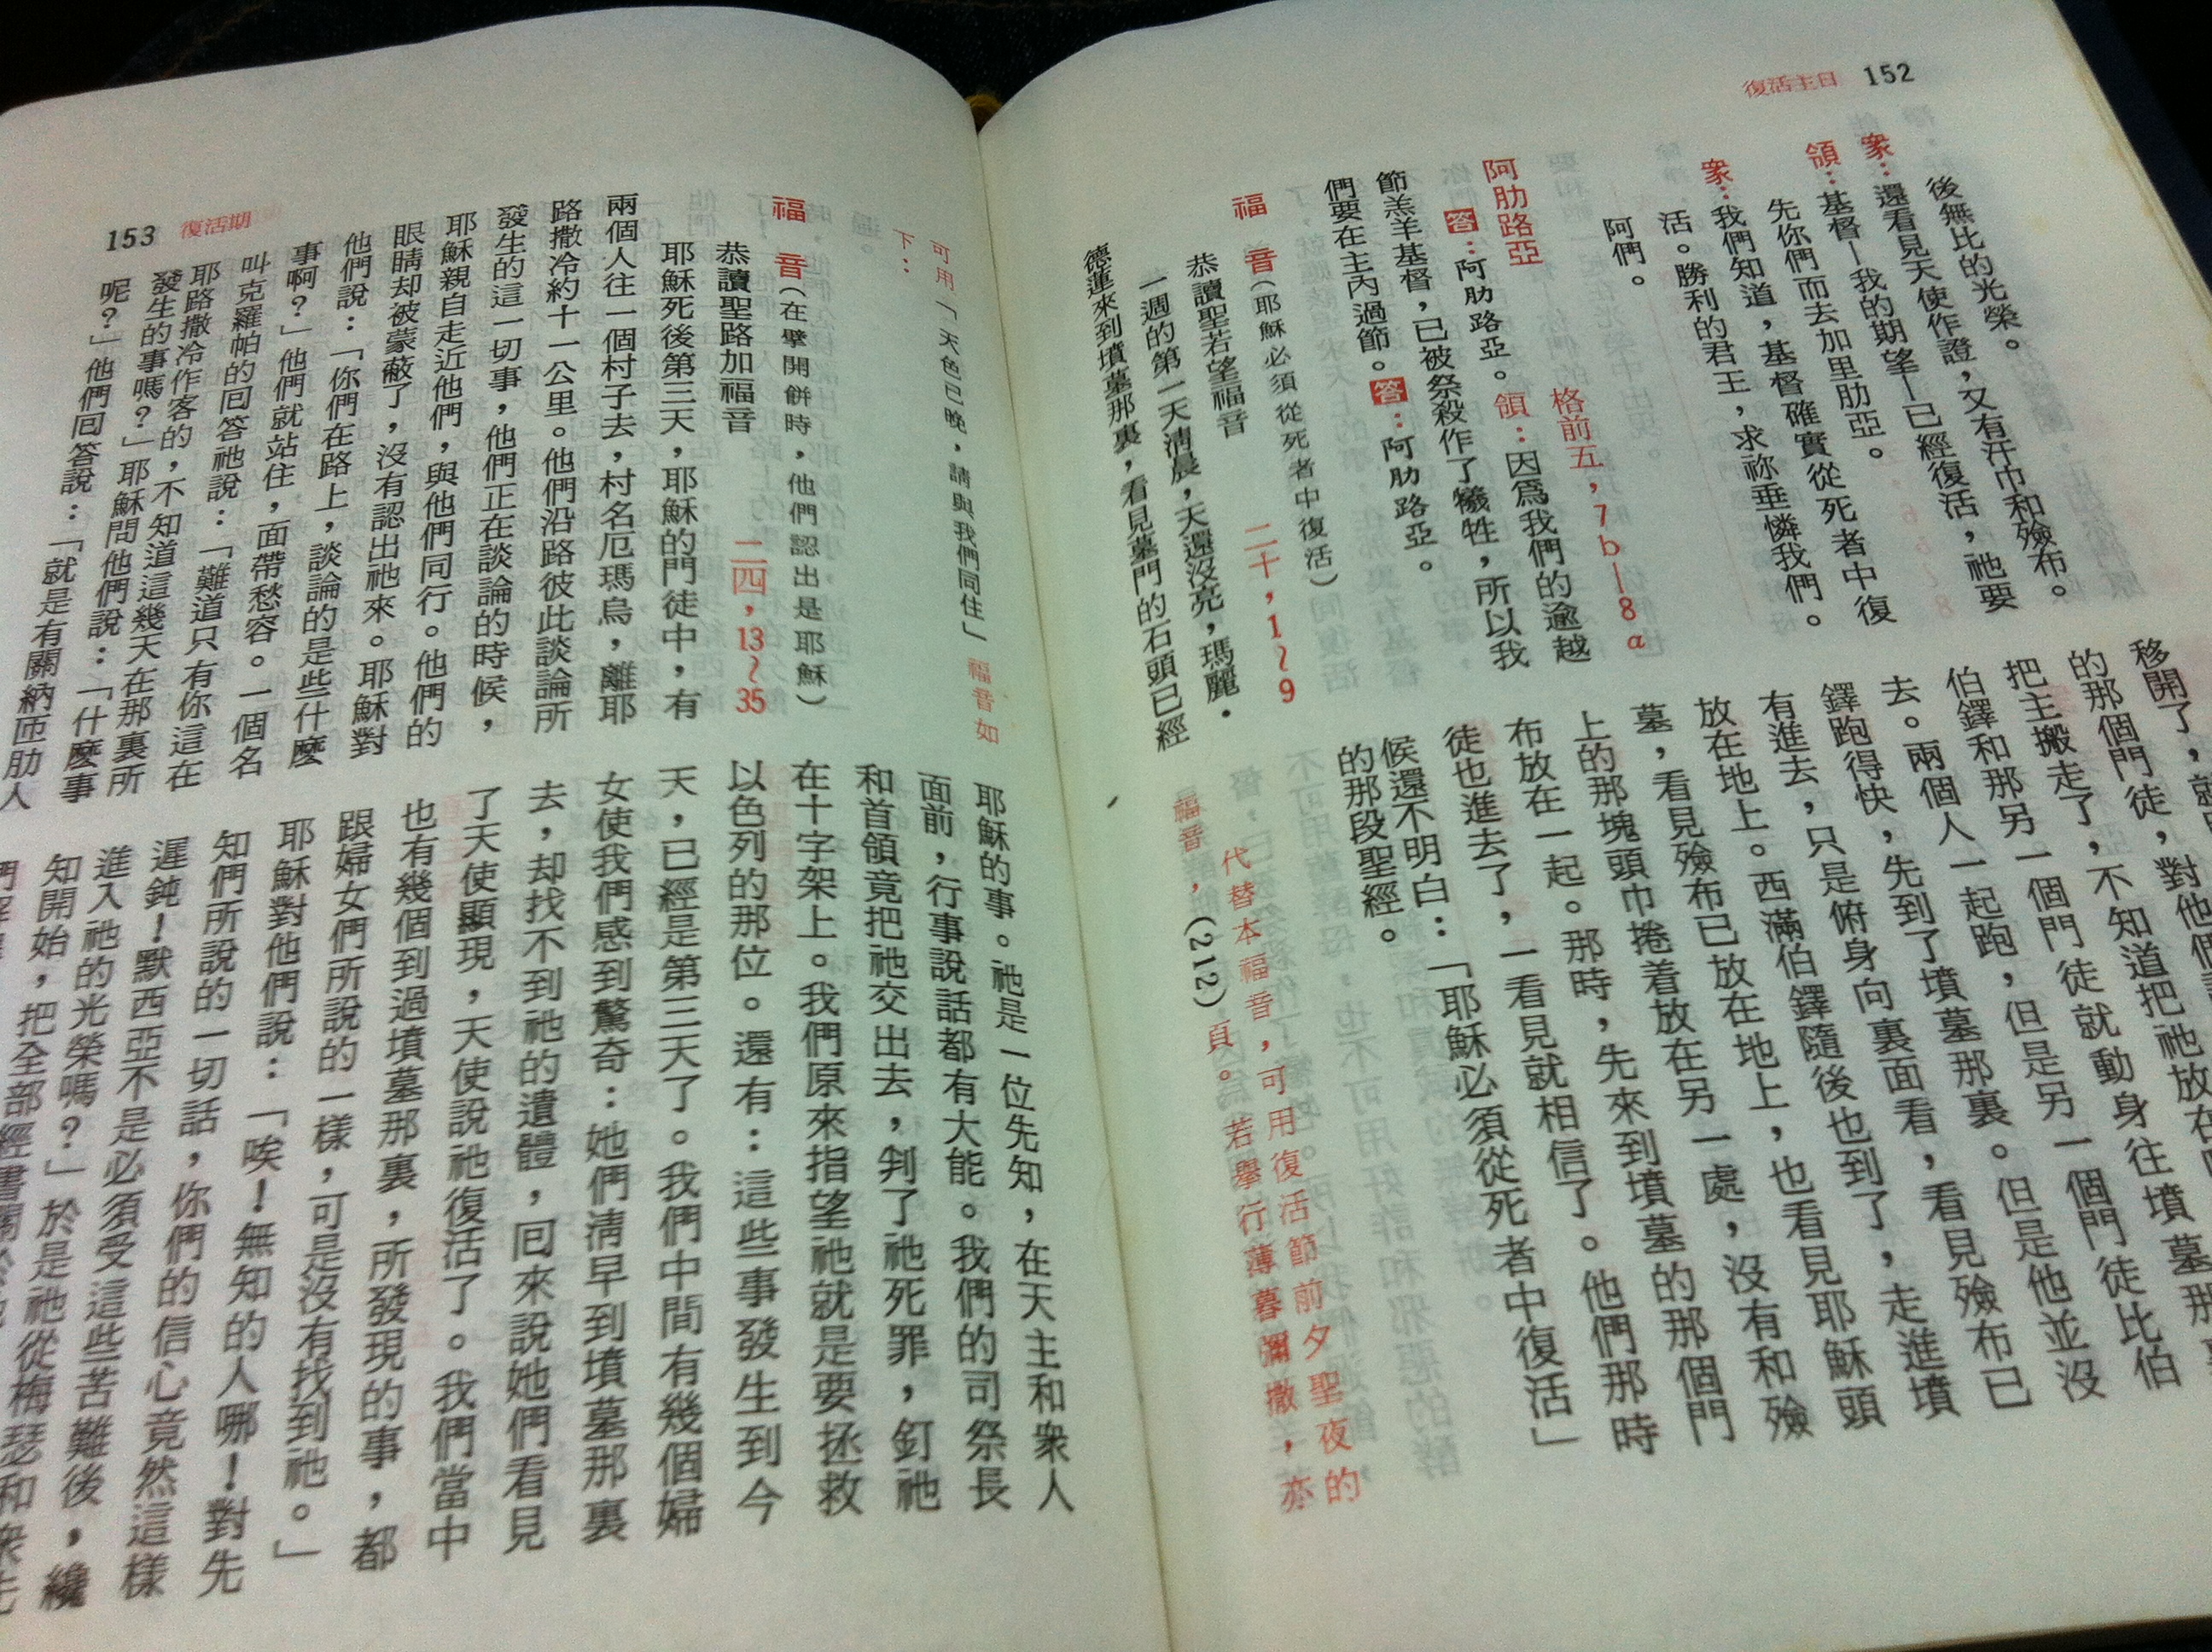 復活主日 152
後無比的光榮。
衆：還看見天使作證，又有汗巾和殮布。
領：基督—我的期望—已經復活，祂要
先你們而去加里肋亞。
衆：我們知道，基督確實從死者中復
活。勝利的君王，求祢垂憐我們。
阿們。
阿肋路亞 格前五，7b—8a
答：阿肋路亞。領：因爲我們的逾越
節羔羊基督，已被祭殺作了犧牲，所以我
們要在主內過節。答：阿肋路亞。
福 音（耶穌必須從死者中復活）
恭讀聖若望福音 二十，1～9
一週的第一天清晨，天還沒亮，瑪麗・
德蓮來到墳墓那裏，看見墓門的石頭已經
移開了，就
的那個門徒，對他們
把主搬走了，不知道把祂放在
伯鐸和那另一個門徒就動身往墳墓那
去。兩個人一起跑，但是另一個門徒比伯
鐸跑得快，先到了墳墓那裏。但是他並沒
有進去，只是俯身向裏面看，看見殮布已
放在地上。西滿伯鐸隨後也到了，走進墳
墓，看見殮布已放在地上，也看見耶穌頭
上的那塊頭巾捲着放在另一處，沒有和殮
布放在一起。那時，先來到墳墓的那個門
徒也進去了，一看見就相信了。他們那時
候還不明白：「耶穌必須從死者中復活」
的那段聖經。
代替本福音，可用復活節前夕聖夜的
福音，(212)頁。若舉行薄暮彌撒，亦
可用「天色已晚，請與我們同住」福音如
下：
福 音（在擘開餅時，他們認出是耶穌）
恭讀聖路加福音 二四，13～35
耶穌死後第三天，耶穌的門徒中，有
兩個人往一個村子去，村名厄瑪烏，離耶
路撒冷約十一公里。他們沿路彼此談論所
發生的這一切事，他們正在談論的時候，
耶穌親自走近他們，與他們同行。他們的
眼睛却被蒙蔽了，沒有認出祂來。耶穌對
他們說：「你們在路上，談論的是些什麼
事啊？」他們就站住，面帶愁容。一個名
叫克羅帕的回答祂說：「難道只有你這在
耶路撒冷作客的，不知道這幾天在那裏所
發生的事嗎？」耶穌問他們說：「什麼事
呢？」他們回答說：「就是有關納匝肋人
耶穌的事。祂是一位先知，在天主和衆人
面前，行事說話都有大能。我們的司祭長
和首領竟把祂交出去，判了祂死罪，釘祂
在十字架上。我們原來指望祂就是要拯救
以色列的那位。還有：這些事發生到今
天，已經是第三天了。我們中間有幾個婦
女使我們感到驚奇：她們清早到墳墓那裏
去，却找不到祂的遺體，回來說她們看見
了天使顯現，天使說祂復活了。我們當中
也有幾個到過墳墓那裏，所發現的事，都
跟婦女們所說的一樣，可是沒有找到祂。」
耶穌對他們說：「唉！無知的人哪！對先
知們所說的一切話，你們的信心竟然這樣
遲鈍！默西亞不是必須受這些苦難後，纔
進入祂的光榮嗎？」於是祂從梅瑟和衆先
知開始，把全部經書
153 復活期